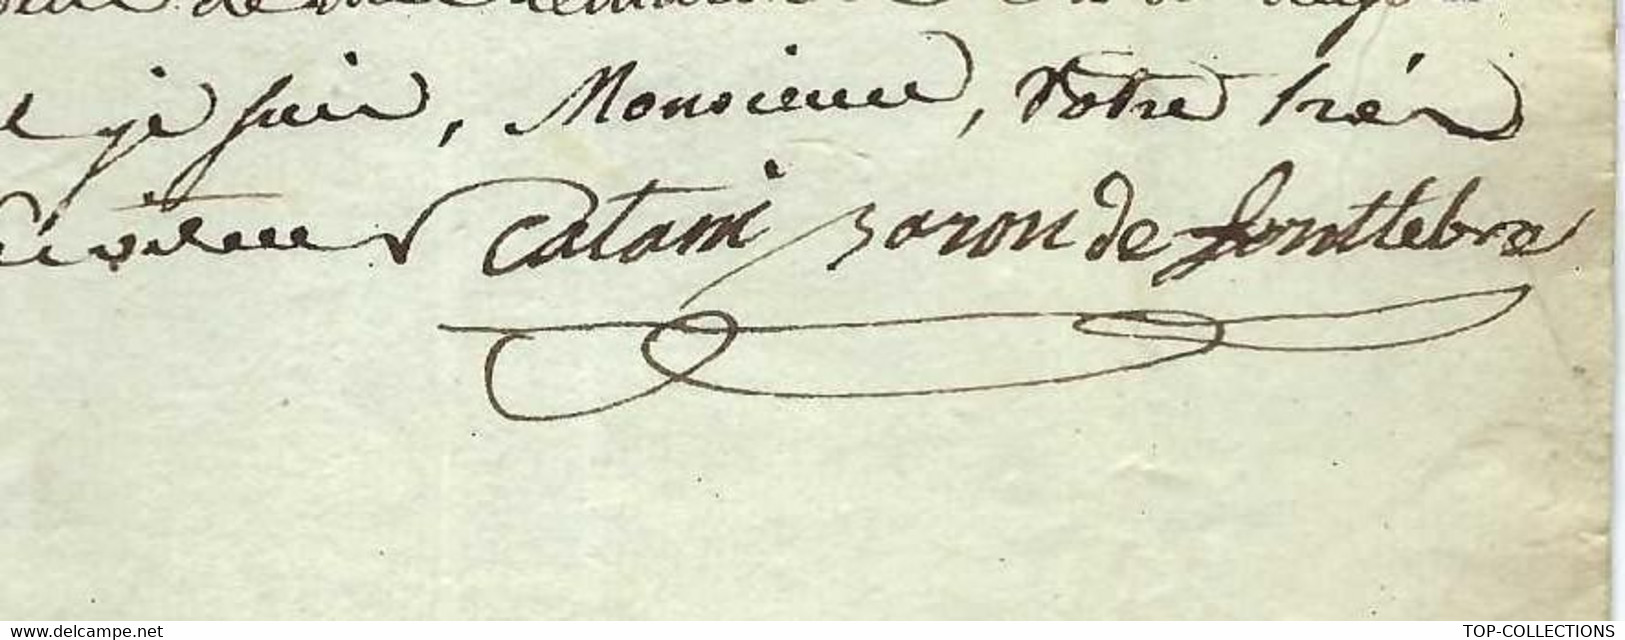 je suis, Monsieur, Votre trés
Serviteur Catani baron de fonttebra
www.delcampe.net
TOP-COLLECTIONS